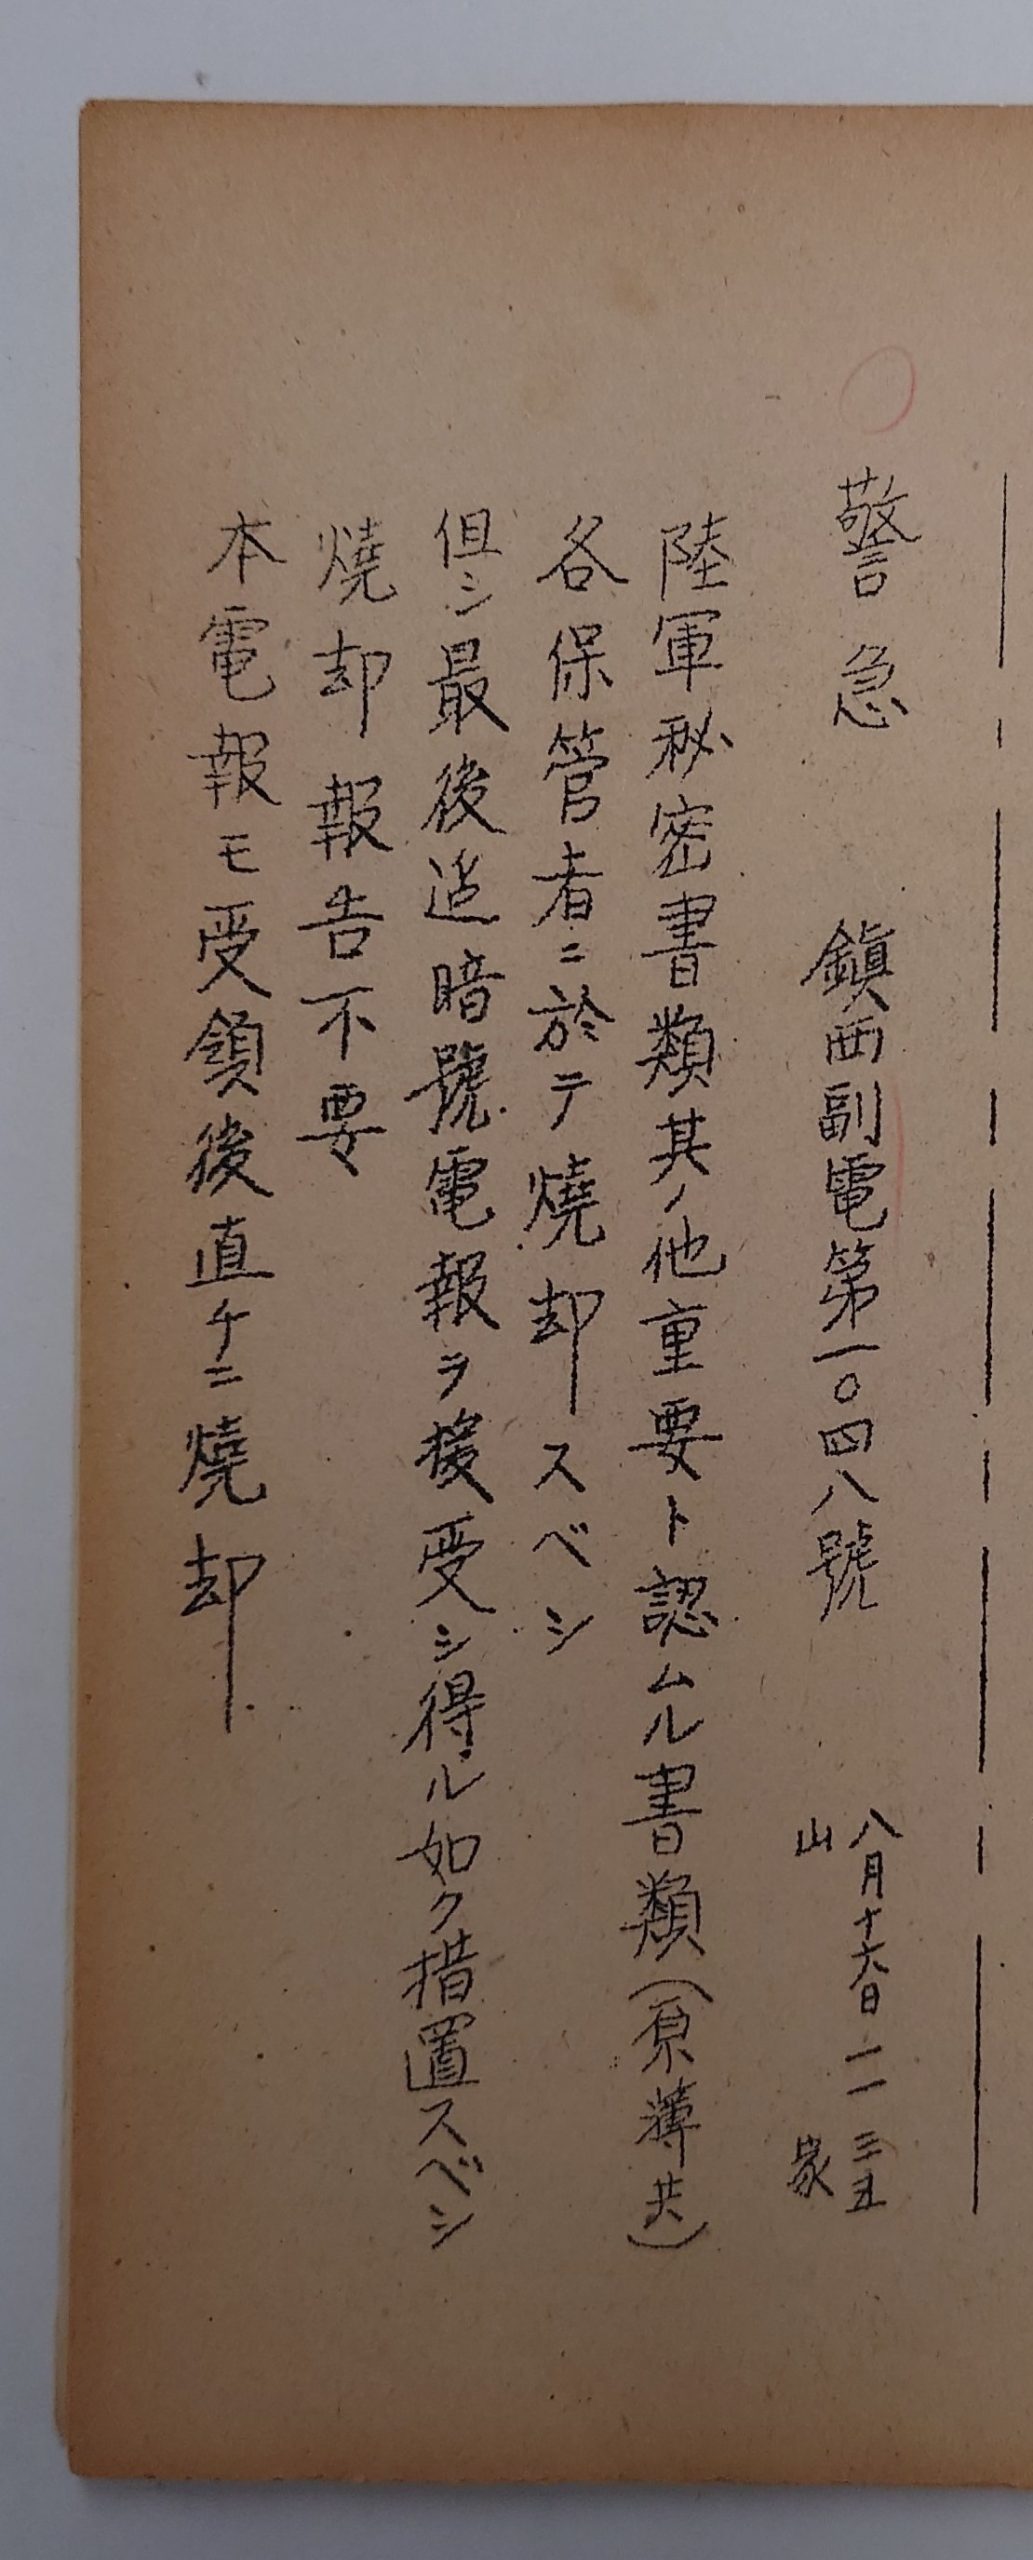 警急　鎭西副電第一〇四八號　八月十六日　二一三五
山　家
陸軍秘密書類其ノ他重要ト認ムル書類(原薄共)
各保管者ニ於テ燒却スベシ
但シ最後迄暗號電報ヲ接受シ得ル如ク措置スベシ
燒却報告不要
本電報モ受領後直チニ燒却